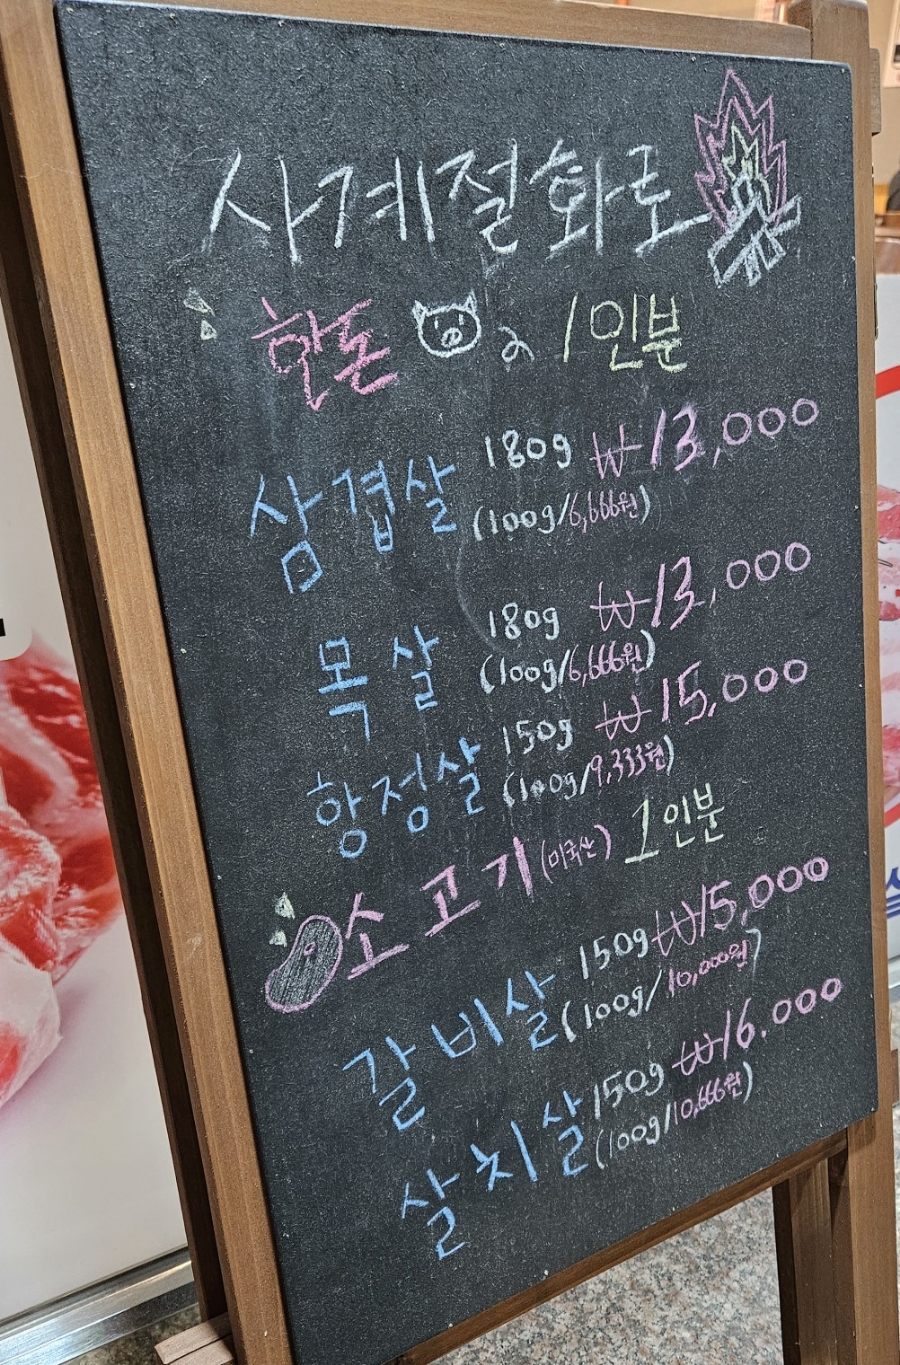 사계절화로
한돈 1인분
삼겹살 180g ₩13,000
(100g/6,666원)
목살 180g ₩13,000
(100g/6,666원)
항정살 150g ₩15,000
(100g/9,333원)
소고기(미국산) 1인분
갈비살 150g ₩15,000
(100g/10,000원)
살치살 150g ₩16.000
(100g/10,666원)